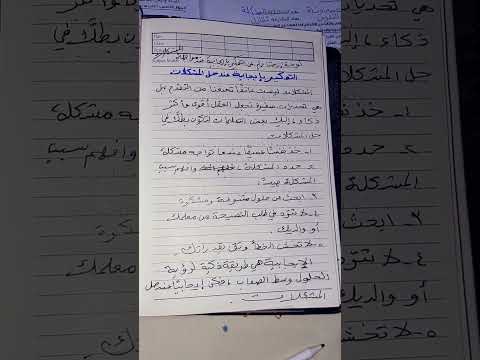 التفكير بإيجابية عند حل المشكلات
المشكلات ليست عائقاً تمنعنا من التقدم بل
هي تحديات صغيرة تجعل العقل أقوى وأكثر
ذكاء، إليك بعض التعليمات لتكون بطلاً في
حل المشكلات
١- خذ نفساً عميقاً عندما تواجه مشكلة
٢- حدد المشكلة، وافهم سبب
المشكلة جيداً.
٣- ابحث عن حلول متنوعة ومبتكرة
٤- لا تتردد في طلب النصيحة من معلمك
أو والديك.
٥- لا تخشَ الخطأ وثق بقدراتك.
الإيجابية هي طريقة ذكية لرؤية
الحلول وسط الصعاب، فكن إيجابياً عند حل
المشكلات.